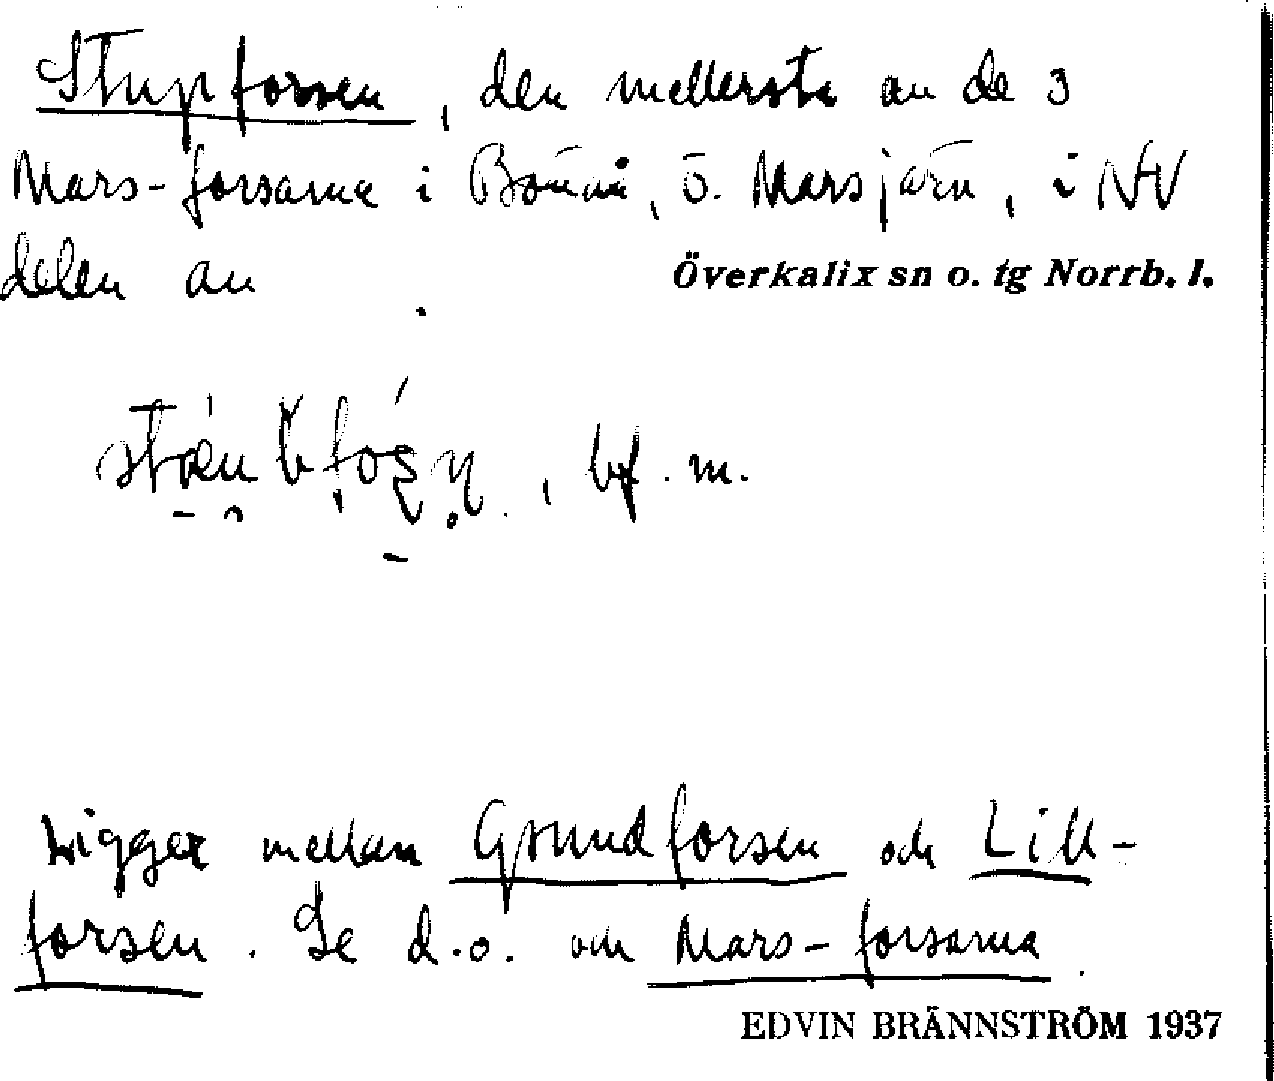 Stupforsen, den mellersta av de 3
Mars-forsarna i Bönån, ö. Marsjärv, i NV
delen av Överkalix sn o. tg Norrb. l.
, bf. m.
Ligger mellan Grundforsen och Lill-
forsen. Se d.o. och Mars-forsarna.
EDVIN BRÄNNSTRÖM 1937